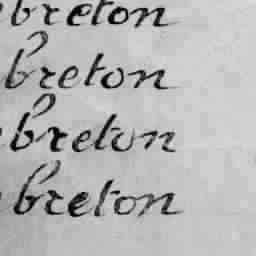 breton
breton
breton
breton